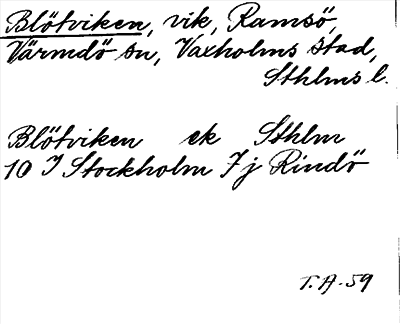 Blötviken, vik, Ramsö,
Värmdö sn, Vaxholms stad,
Sthlms l.
Blötviken ek Sthlm
10 I Stockholm 7 j Rindö
T.A.-59